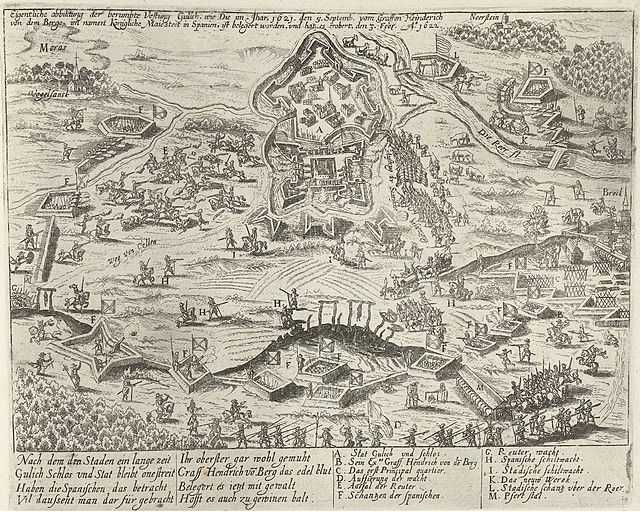 Eigentliche abbiltung der berumbte Vestung Gulich, wie Die an. Jhar. 1621. den 5. Septemb. vom Graffen Heinderich
von dem Berge, im namen Königliche Maiestteit in Spanien, ist belegert worden, und hat es erobert, den 3. Febr. A° 1622
Neerstein
Moras
Vogelsanck
Die Roer fl
Broich
Weg von Collen
Nach dem dm Staden ein lange zeit
Gulich Schlos und Stat bleibt onestreit
Haben die Spanischen das betracht
Vil daussent man dar für gebracht
Ihr oberster gar wohl gemuht
Graff Hendrich vō Berg das edel blut
Belegert es ietzt mit gewalt
Hofft es auch zu gewinen balt.
A. Stat Gulich und schlos.
B. Sein Ex^ae Graff Henderich von dē Berg
C. Das erst Principal quartier.
D. Auffürung der wacht
E. Ausfal der Reuter.
F. Schantzen der spanischen.
G. Reuter wacht
H. Spanische schiltwacht
I. Stadische schiltwach
K. Das neuw Werck
L. Stadische schantz uber der Roer.
M. Pfert stal.